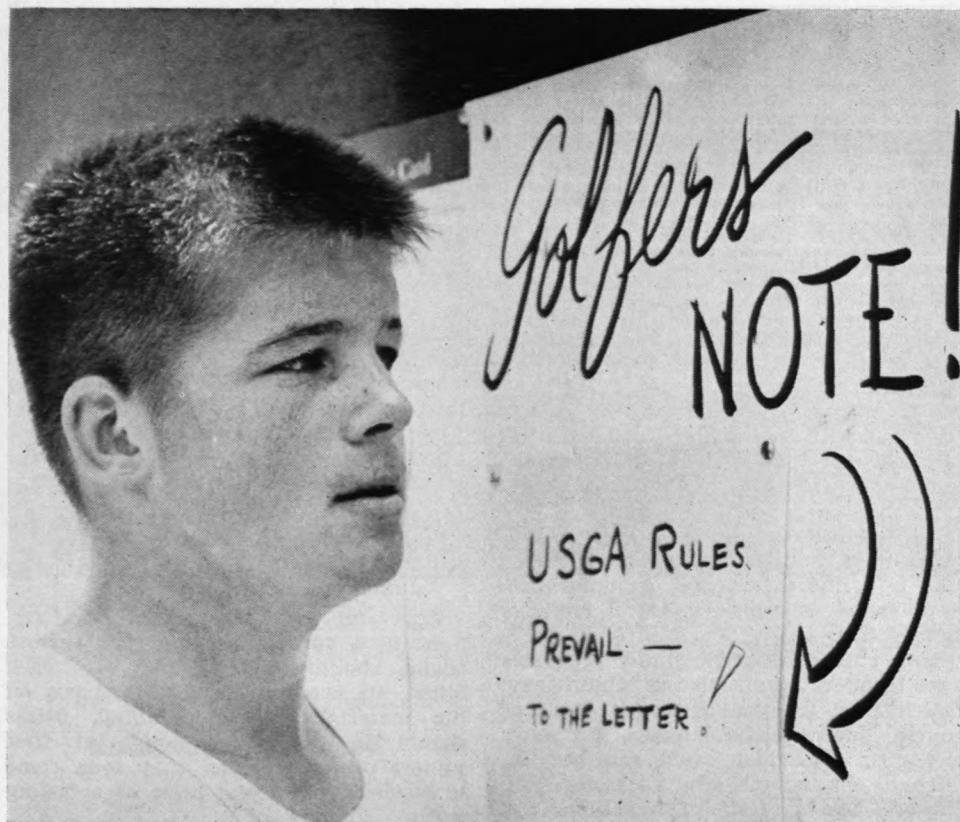 Golfers
NOTE!
USGA RULES
PREVAIL —
TO THE LETTER!
Card